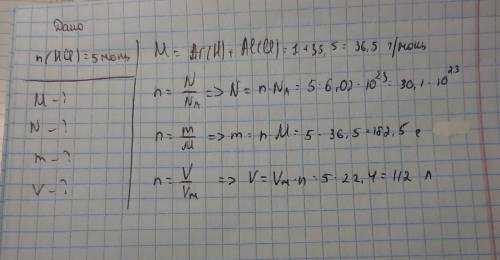 Дано
n(HCl) = 5 моль
M - ?
N - ?
m - ?
V - ?
M = Ar(H) + Ar(Cl) = 1 + 35,5 = 36,5 г/моль
n = N/NA => N = n·NA = 5·6,02·10²³ = 30,1·10²³
n = m/M => m = n·M = 5·36,5 = 182,5 г
n = V/Vm => V = Vm·n = 5·22,4 = 112 л